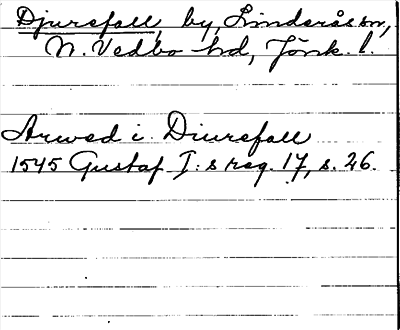 Djursfall, by, Linderås sn,
N. Vedbo hd, Jönk. l.
Arwed i Diursfall
1545 Gustaf I:s reg. 17, s. 26.